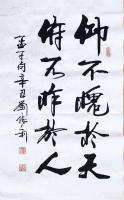 仰不愧於天
俯不怍於人
孟子句辛丑